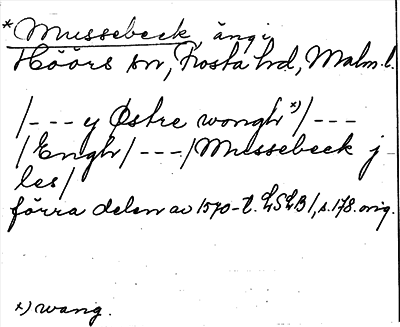 *Mussebeck, äng i
Höörs sn, Frosta hd, Malm. l.
/--- y Østre wongh *)/---
/Engh/ ---/Mussebeck j
les/
förra delen av 1570-t. LSLB 1, s. 178. orig.
*) wang.